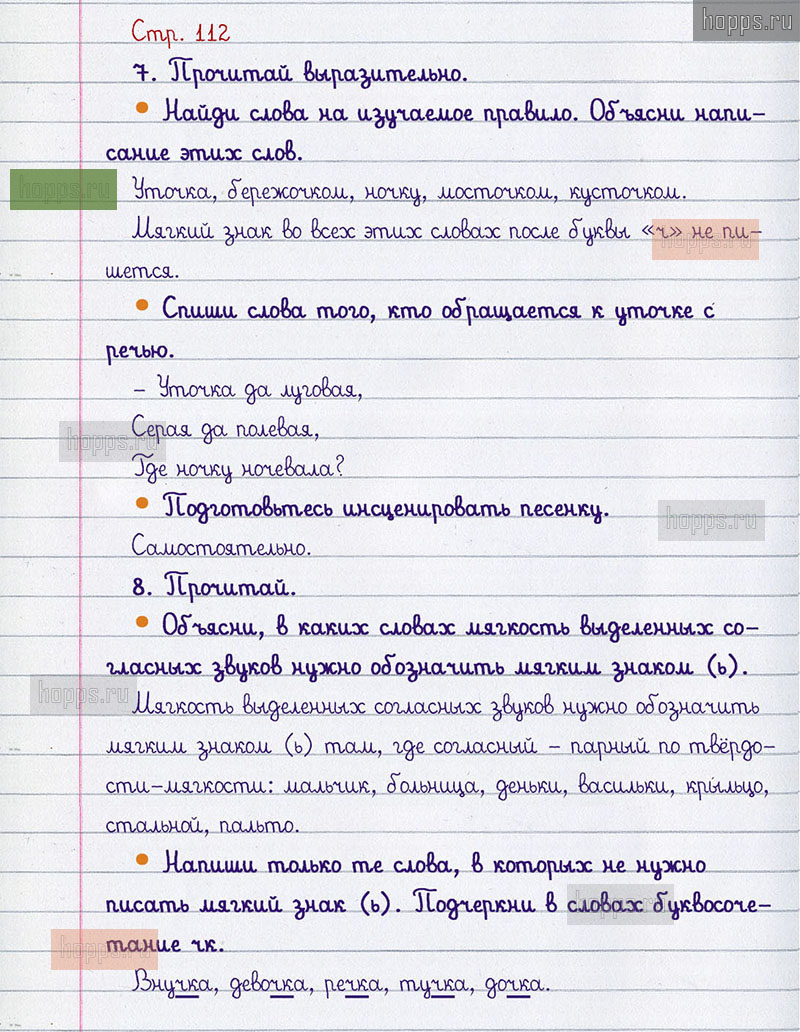 hopps.ru
Стр. 112
7. Прочитай выразительно.
• Найди слова на изучаемое правило. Объясни напи-
сание этих слов.
hopps.ru
Уточка, бережочком, ночку, мосточком, кусточком.
Мягкий знак во всех этих словах после буквы «ч» не пи-
hopps.ru
шется.
• Спиши слова того, кто обращается к уточке с
речью.
– Уточка да луговая,
Серая да полевая,
hopps.ru
Где ночку ночевала?
• Подготовьтесь инсценировать песенку.
hopps.ru
Самостоятельно.
8. Прочитай.
• Объясни, в каких словах мягкость выделенных со-
гласных звуков нужно обозначить мягким знаком (ь).
hopps.ru
Мягкость выделенных согласных звуков нужно обозначить
мягким знаком (ь) там, где согласный – парный по твёрдо-
сти-мягкости: мальчик, больница, деньки, васильки, крыльцо,
стальной, пальто.
• Напиши только те слова, в которых не нужно
писать мягкий знак (ь). Подчеркни в словах буквосоче-
hopps.ru
тание чк.
hopps.ru
Внучка, девочка, речка, тучка, дочка.